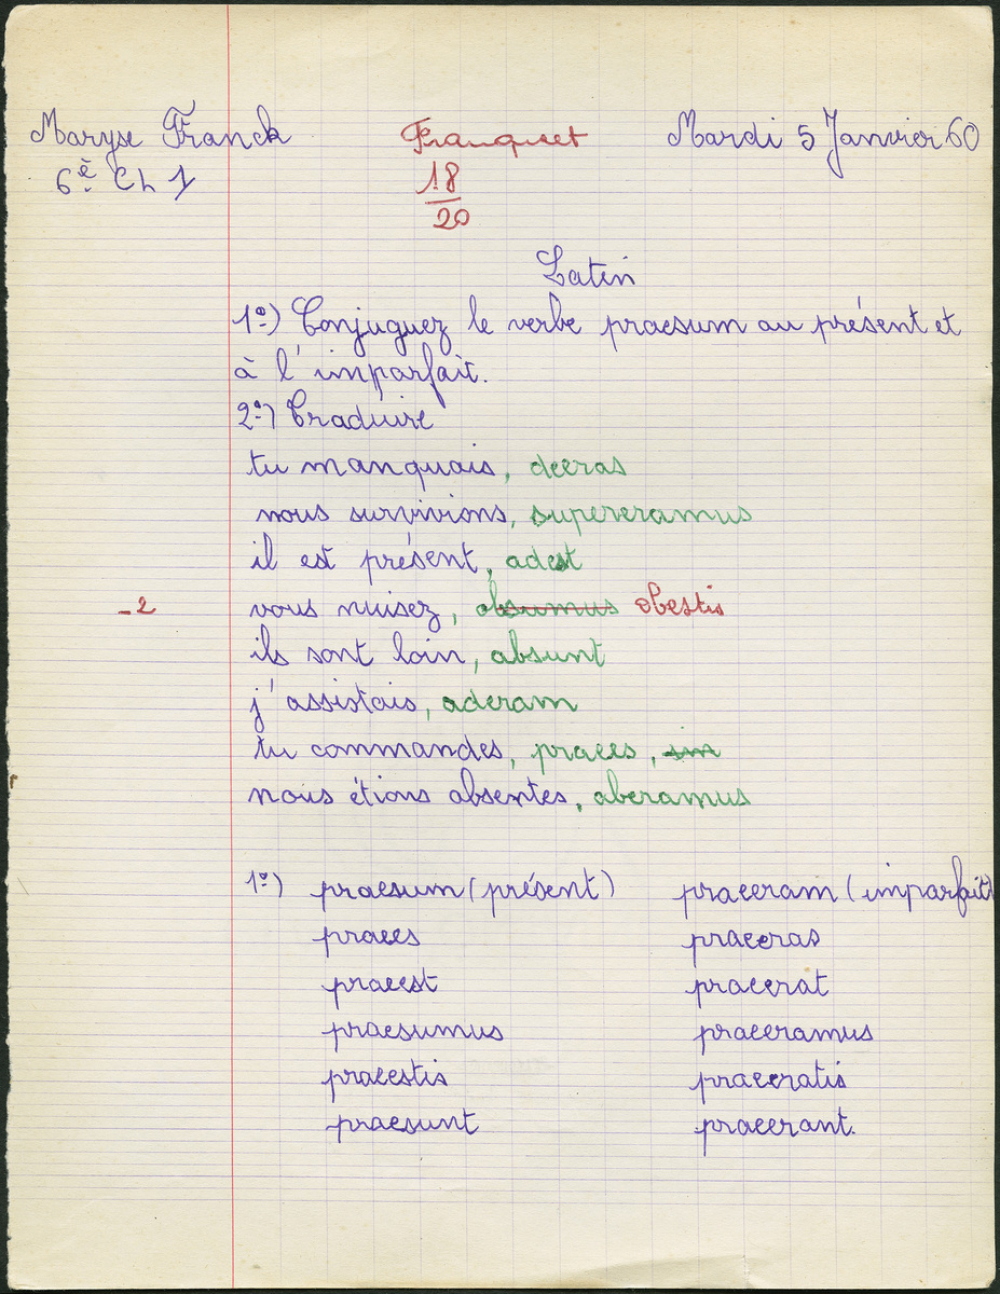 Maryse Franck Franquet Mardi 5 Janvier 60
6è. Ch 1 18/20
Latin
1º) Conjuguez le verbe praesum au présent et
à l'imparfait.
2º) Traduire
tu manquais, deeras
nous survivions, supereramus
il est présent, adest
-2 vous nuisez, obsumus obestis
ils sont loin, absunt
j'assistais, aderam
tu commandes, praees, sin
nous étions absentes, aberamus
1º) praesum (présent) praeeram (imparfait)
praees praeeras
praeest praeerat
praesumus praeeramus
praeestis praeeratis
praesunt praeerant.